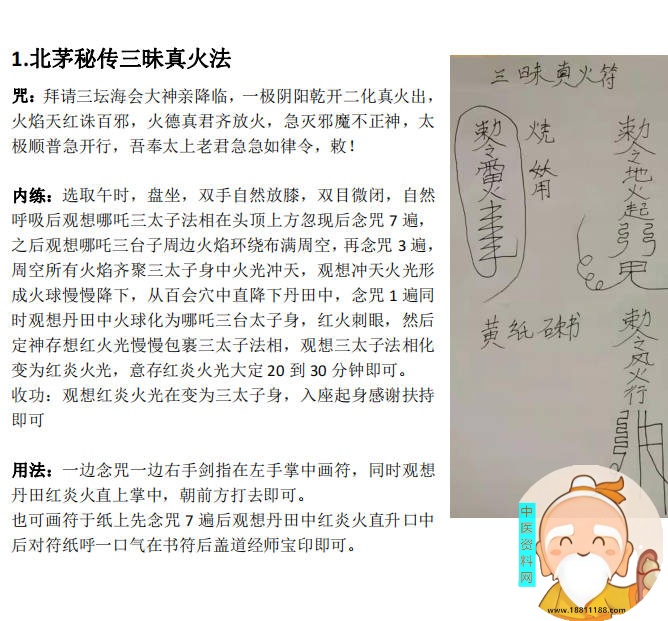 1.北茅秘传三昧真火法
咒：拜请三坛海会大神亲降临，一极阴阳乾开二化真火出，
火焰天红诛百邪，火德真君齐放火，急灭邪魔不正神，太
极顺普急开行，吾奉太上老君急急如律令，敕！
内练：选取午时，盘坐，双手自然放膝，双目微闭，自然
呼吸后观想哪吒三太子法相在头顶上方忽现后念咒 7 遍，
之后观想哪吒三台子周边火焰环绕布满周空，再念咒 3 遍，
周空所有火焰齐聚三太子身中火光冲天，观想冲天火光形
成火球慢慢降下，从百会穴中直降下丹田中，念咒 1 遍同
时观想丹田中火球化为哪吒三台太子身，红火刺眼，然后
定神存想红火光慢慢包裹三太子法相，观想三太子法相化
变为红炎火光，意存红炎火光大定 20 到 30 分钟即可。
收功：观想红炎火光在变为三太子身，入座起身感谢扶持
即可
用法：一边念咒一边右手剑指在左手掌中画符，同时观想
丹田红炎火直上掌中，朝前方打去即可。
也可画符于纸上先念咒 7 遍后观想丹田中红炎火直升口中
后对符纸呼一口气在书符后盖道经师宝印即可。
三昧真火符
敕令雷火
烧
敕令地火起
黄纸硃书
敕令风火行
中医资料网
www.18811188.com